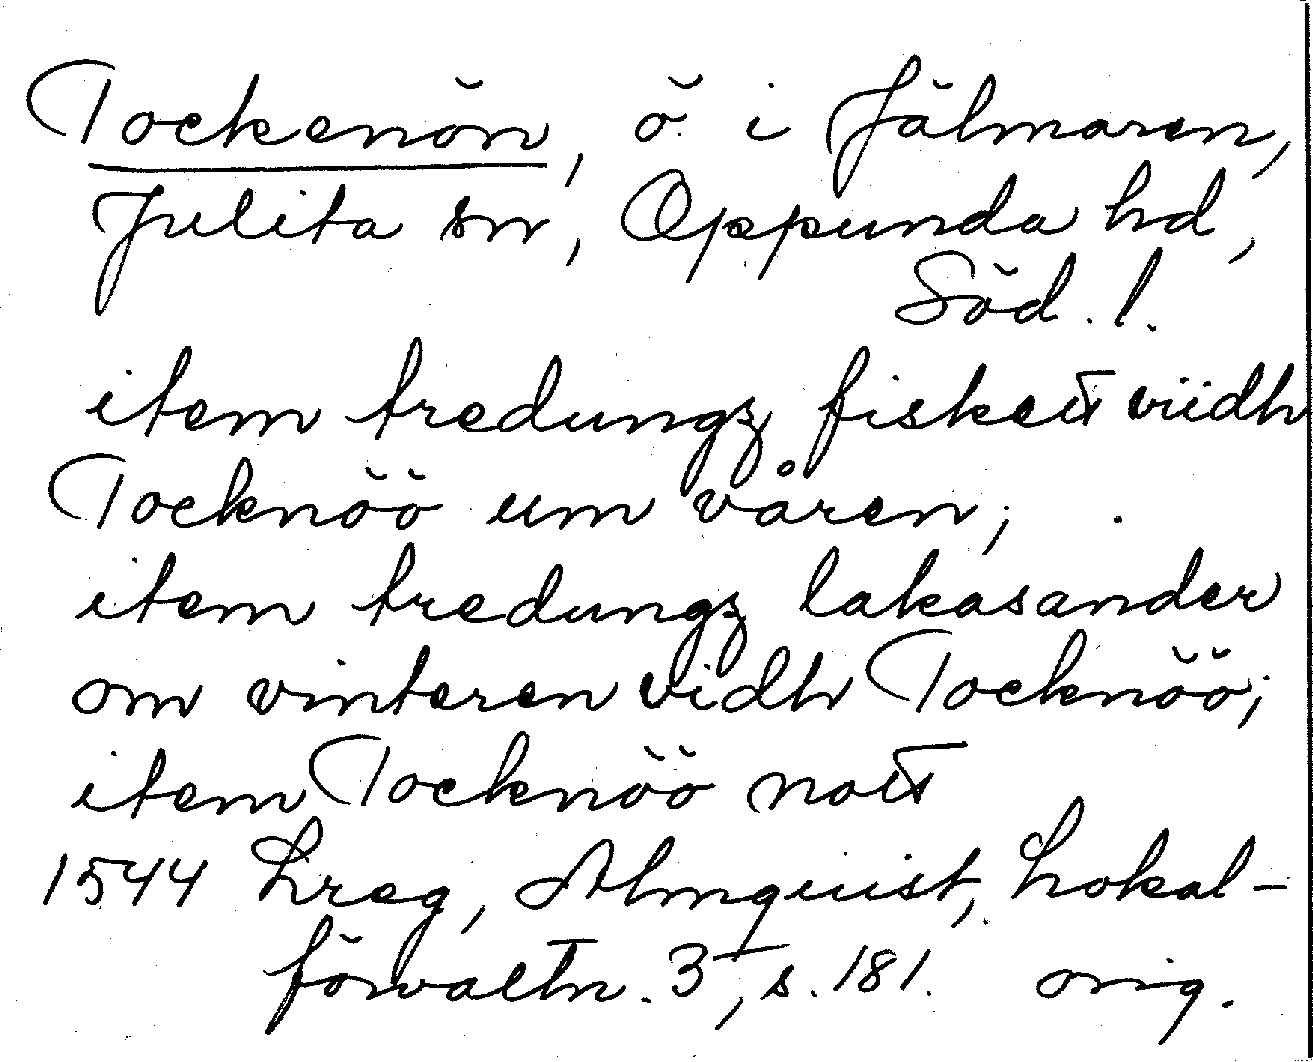 Tockenön, ö i Hjälmaren,
Julita sn, Oppunda hd,
Söd. l.
item tredungz fiskett viidh
Tocknöö um våren;
item tredungz lakasander
om vinteren vidh Tocknöö;
item Tocknöö nott
1544 Lreg, Almquist, Lokal-
förvaltn. 3, s. 181. orig.